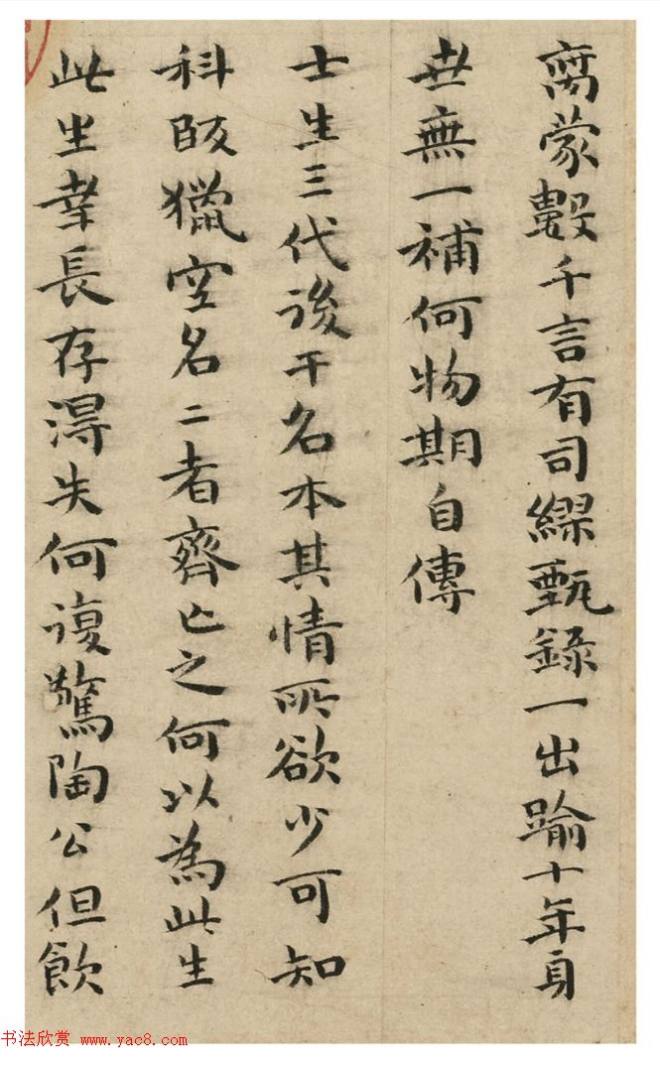 蒙數千言有司繆甄錄一出踰十年身
世無一補何物期自傳
士生三代後干名本其情所欲少可知
科獵空名二者齊亡之何以為此生
此坐幸長存得失何復驚陶公但飲
书法欣赏 www.yac8.com